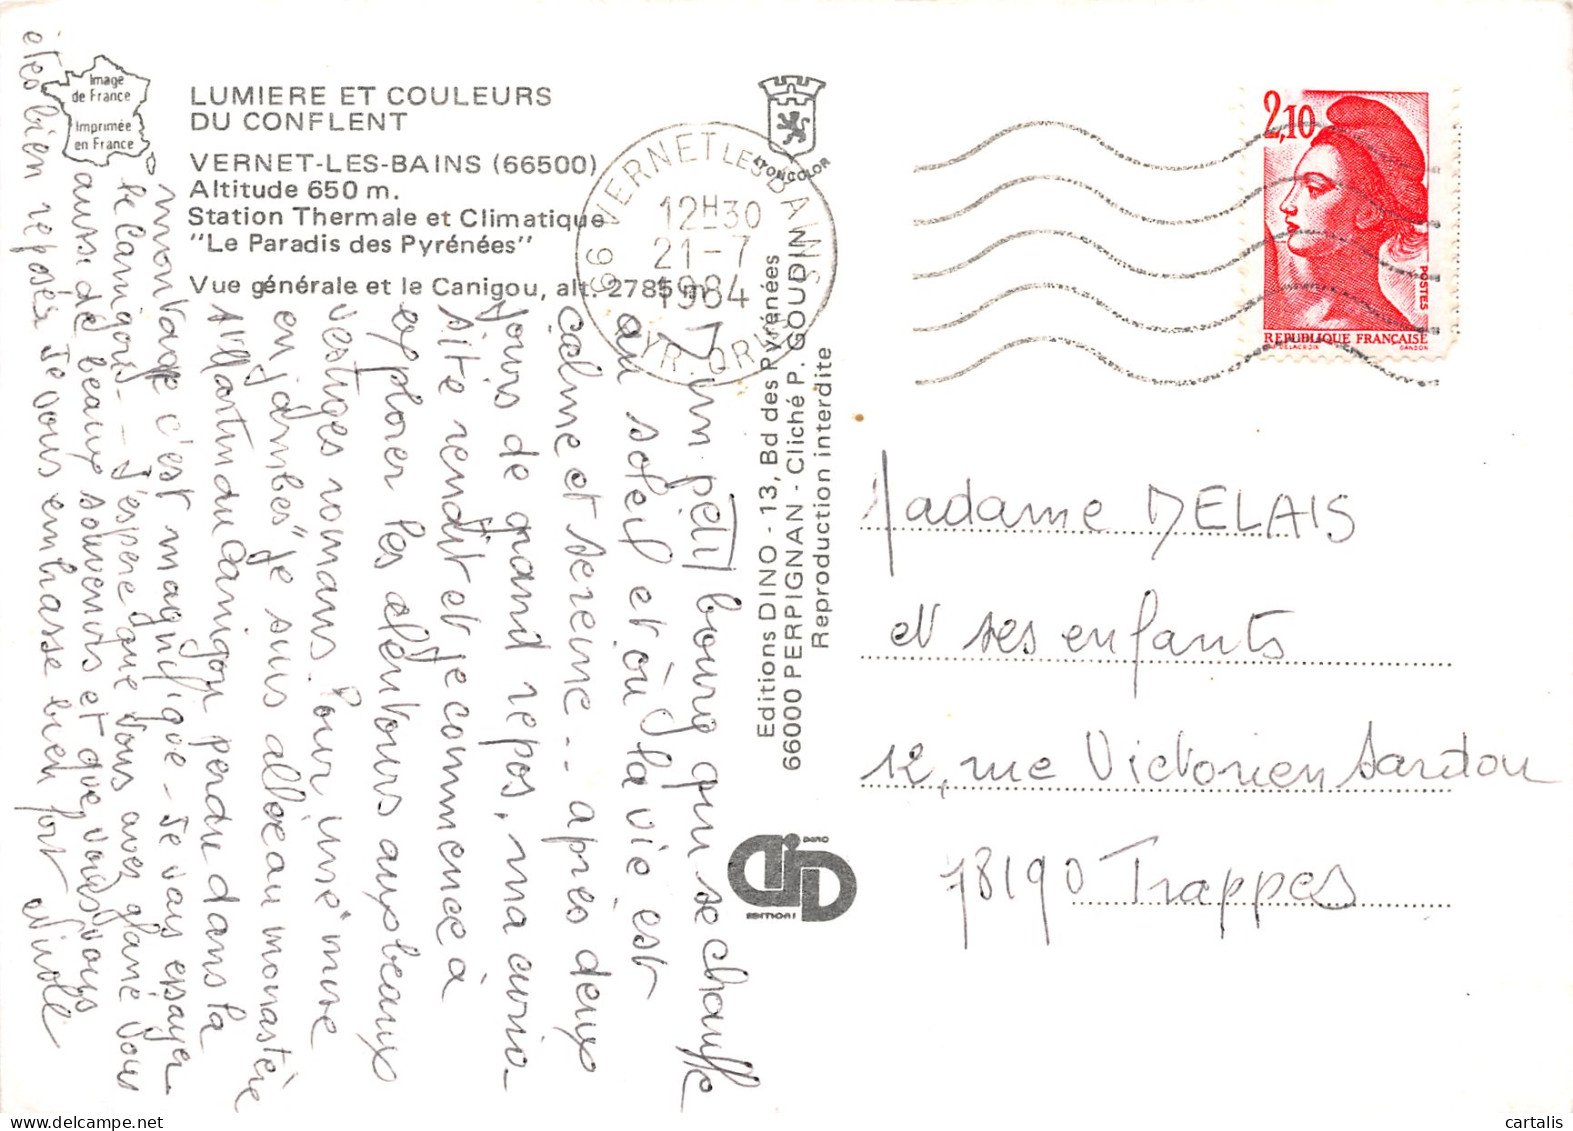 Image
de France
Imprimée
en France
LUMIERE ET COULEURS
DU CONFLENT
VERNET-LES-BAINS (66500)
Altitude 650 m.
Station Thermale et Climatique
"Le Paradis des Pyrénées"
Vue générale et le Canigou, alt. 2785 m
LYONCOLOR
66 VERNET LES BAINS
12H30
21-7
1984
PYR. OR.
2,10
POSTES
REPUBLIQUE FRANÇAISE
DELACROIX
GANDON
Editions DINO - 13, Bd des Pyrénées
66000 PERPIGNAN - Cliché P. GOUDIN
Reproduction interdite
DINO
EDITIONS
Un petit bourg qui se chauffe
au soleil et où la vie est
calme et sereine.. après deux
jours de grand repos, ma curio-
sité renaît et je commence à
explorer les alentours aux beaux
vestiges romans. Pour une "mise
en jambes" je suis allée au monastère
St Martin du Canigou perdu dans la
montagne c'est magnifique - Je vais essayer
le Canigou - J'espère que vous avez glané vous
aussi de beaux souvenirs et que vous vous
êtes bien reposés. Je vous embrasse bien fort Nicole
Madame DELAIS
et ses enfants
12, rue Victorien Sardou
78190 Trappes
cartalis